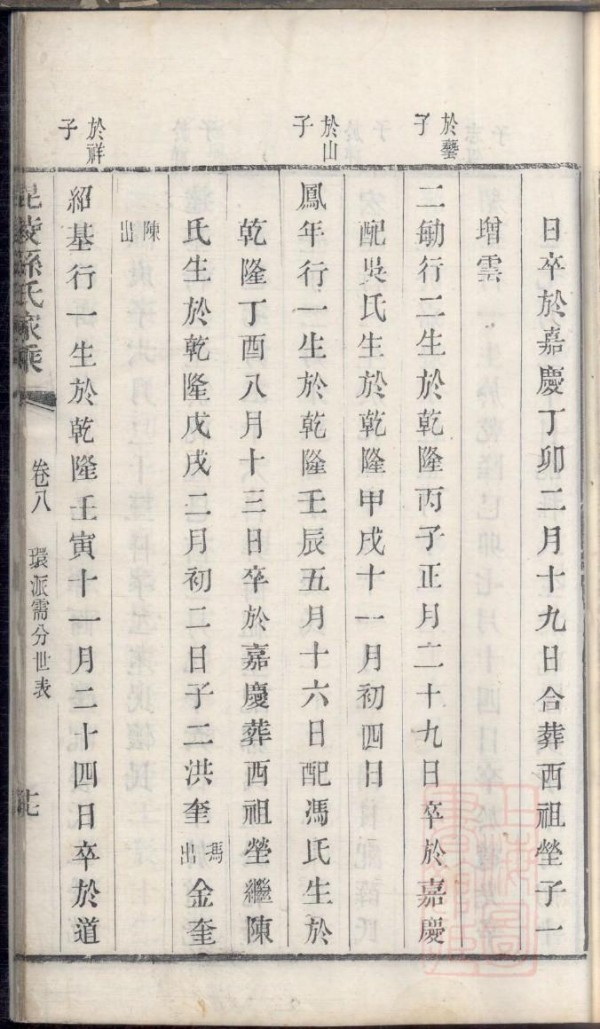 日卒於嘉慶丁卯二月十九日合葬西祖塋子一
增雲
於藝子
二勄行二生於乾隆丙子正月二十九日卒於嘉慶
配吳氏生於乾隆甲戌十一月初四日
於山子
鳳年行一生於乾隆壬辰五月十六日配馮氏生於
乾隆丁酉八月十三日卒於嘉慶葬西祖塋繼陳
氏生於乾隆戊戌二月初二日子二洪奎馮出金奎
陳出
於祥子
紹基行一生於乾隆壬寅十一月二十四日卒於道
毘陵孫氏家乘
卷八
環派需分世表